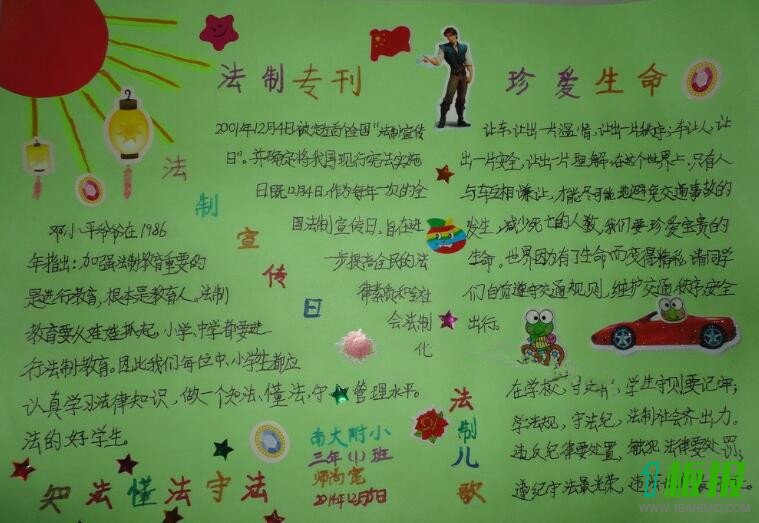 法制专刊
2001年12月4日被定为首个全国“法制宣传
日”。并确定将我国现行宪法实施
日既12月4日,作为每年一次的全
国法制宣传日,旨在进
一步提高全民的法
律素质和全社
会法制
化
管理水平。
法制宣传日
邓小平爷爷在1986
年指出:加强法制教育重要的
是进行教育,根本是教育人。法制
教育要从娃娃抓起,小学、中学都要进
行法制教育。因此我们每位中、小学生都应
认真学习法律知识,做一个知法、懂法、守
法的好学生。
知法懂法守法
南大附小
三年(1)班
2014年12月
珍爱生命
让车,让出一片温情,让出一片秩序;车让人,让
出一片安全,让出一片理解。在这个世界上,只有人
与车互相谦让,才能尽可能地避免交通事故的
发生,减少死亡的人数。我们要珍爱宝贵的
生命。世界因为有了生命而变得精彩。请同学
们自觉遵守交通规则,维护交通秩序安全
出行。
法制儿歌
在学校,守文明,学生守则要记牢;
学法规,守法纪,法制社会齐出力。
违反纪律要处置,触犯法律要处罚;
遵纪守法最光荣,违
板报
WWW.1BANBAO.COM